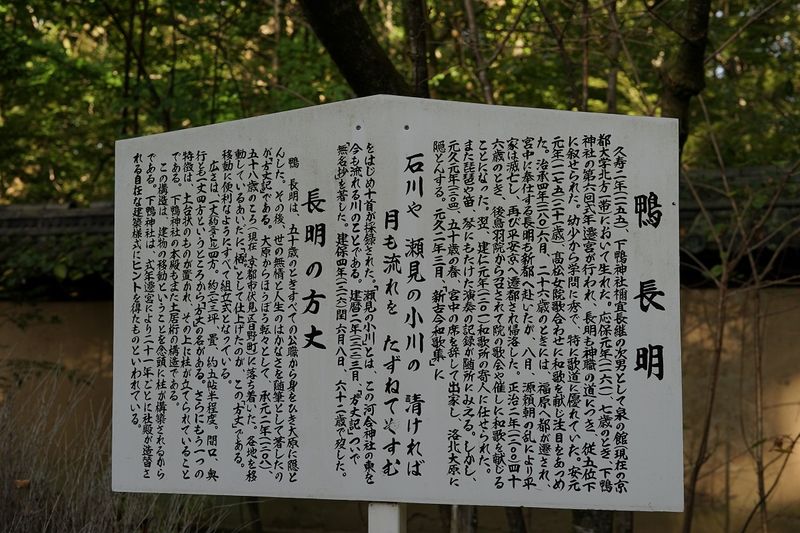 鴨 長 明
久寿二年(一一五五)、下鴨神社禰宜長継の次男として泉の館(現在の京
都大学北方一帯)において生れた。応保元年(一一六一)、七歳のとき、下鴨
神社の第六回式年遷宮が行われ、長明も神職の道につき、従五位下
に叙せられた。幼少から学問に秀で、特に歌道に優れていた。安元
元年(一一七五)二十一歳、高松女院歌合わせに和歌を献じ注目をあつめ
た。治承四年(一一八〇)六月、二十六歳のときには、福原へ都が遷され、
宮中に奉仕する長明も新都へ赴いたが、八月、源頼朝の乱により平
家は滅亡し、再び平安京へ遷都され帰洛した。正治二年(一二〇〇)四十
六歳のとき、後鳥羽院から召されて院の歌会や催しに和歌を献じる
ことになった。翌、建仁元年(一二〇一)和歌所の寄人に任せられた。
また琵琶や笛、琴にもたけた演奏の記録が随所にみえる。しかし、
元久元年(一二〇四)、五十歳の春、宮中の席を辞して出家し、洛北大原に
隠とんする。元久二年三月、「新古今和歌集」に
石川や 瀬見の小川の 清ければ
月も流れを たずねてやすむ
をはじめ十首が採録された。「瀬見の小川」とは、この河合神社の東を
今も流れる川のことである。建暦二年(一二一二)三月、「方丈記」ついで
「無名抄」を著した。建保四年(一二一六)閏六月八日、六十二歳で歿した。
長明の方丈
鴨 長明は、五十歳のときすべての公職から身をひき大原に隠と
んした。その後、世の無情と人生のはかなさを随筆として著したの
が「方丈記」である。大原からほうぼう転々として、承元二年(一二〇八)
五十八歳のころ(現在、京都市伏見区日野町)に落ち着いた。各地を移
動しているあいだに「栖」として仕上げたのが、この「方丈」である。
移動に便利なようにすべて組立式となっている。
広さは、一丈(約三メ)四方、約二・七三坪、畳、約五帖半程度。間口、奥
行とも一丈四方というところから「方丈」の名がある。さらにもう一つの
特徴は、土台状のものが置かれ、その上に柱が立てられていること
である。下鴨神社の本殿もまた土居桁の構造である。
この構造は、建物の移動ということを念頭に柱が構築されるから
である。下鴨神社は、式年遷宮により二十一年ごとに社殿が造替さ
れる自在な建築様式にヒントを得たものといわれている。